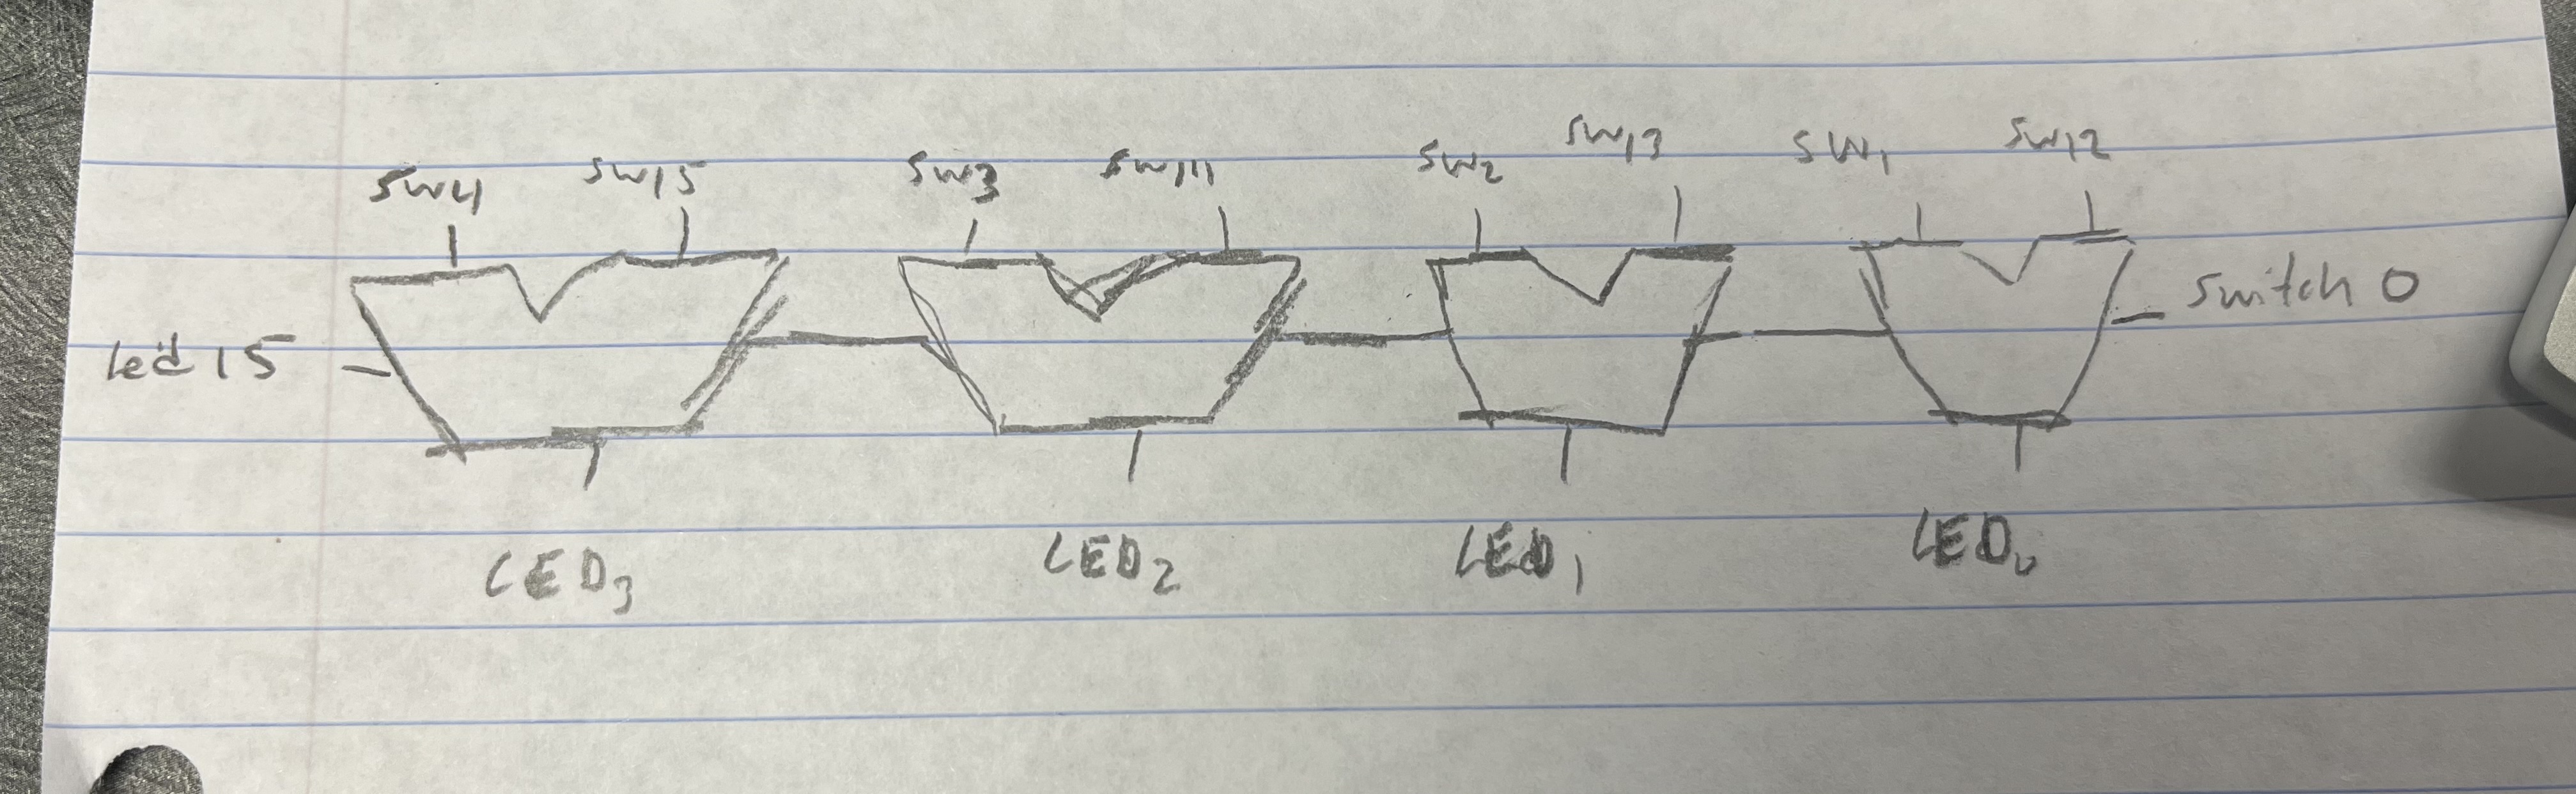 SW4 SW15 SW3 SW14 SW2 SW13 SW1 SW12
Switch 0
led 15
LED3 LED2 LED1 LED0